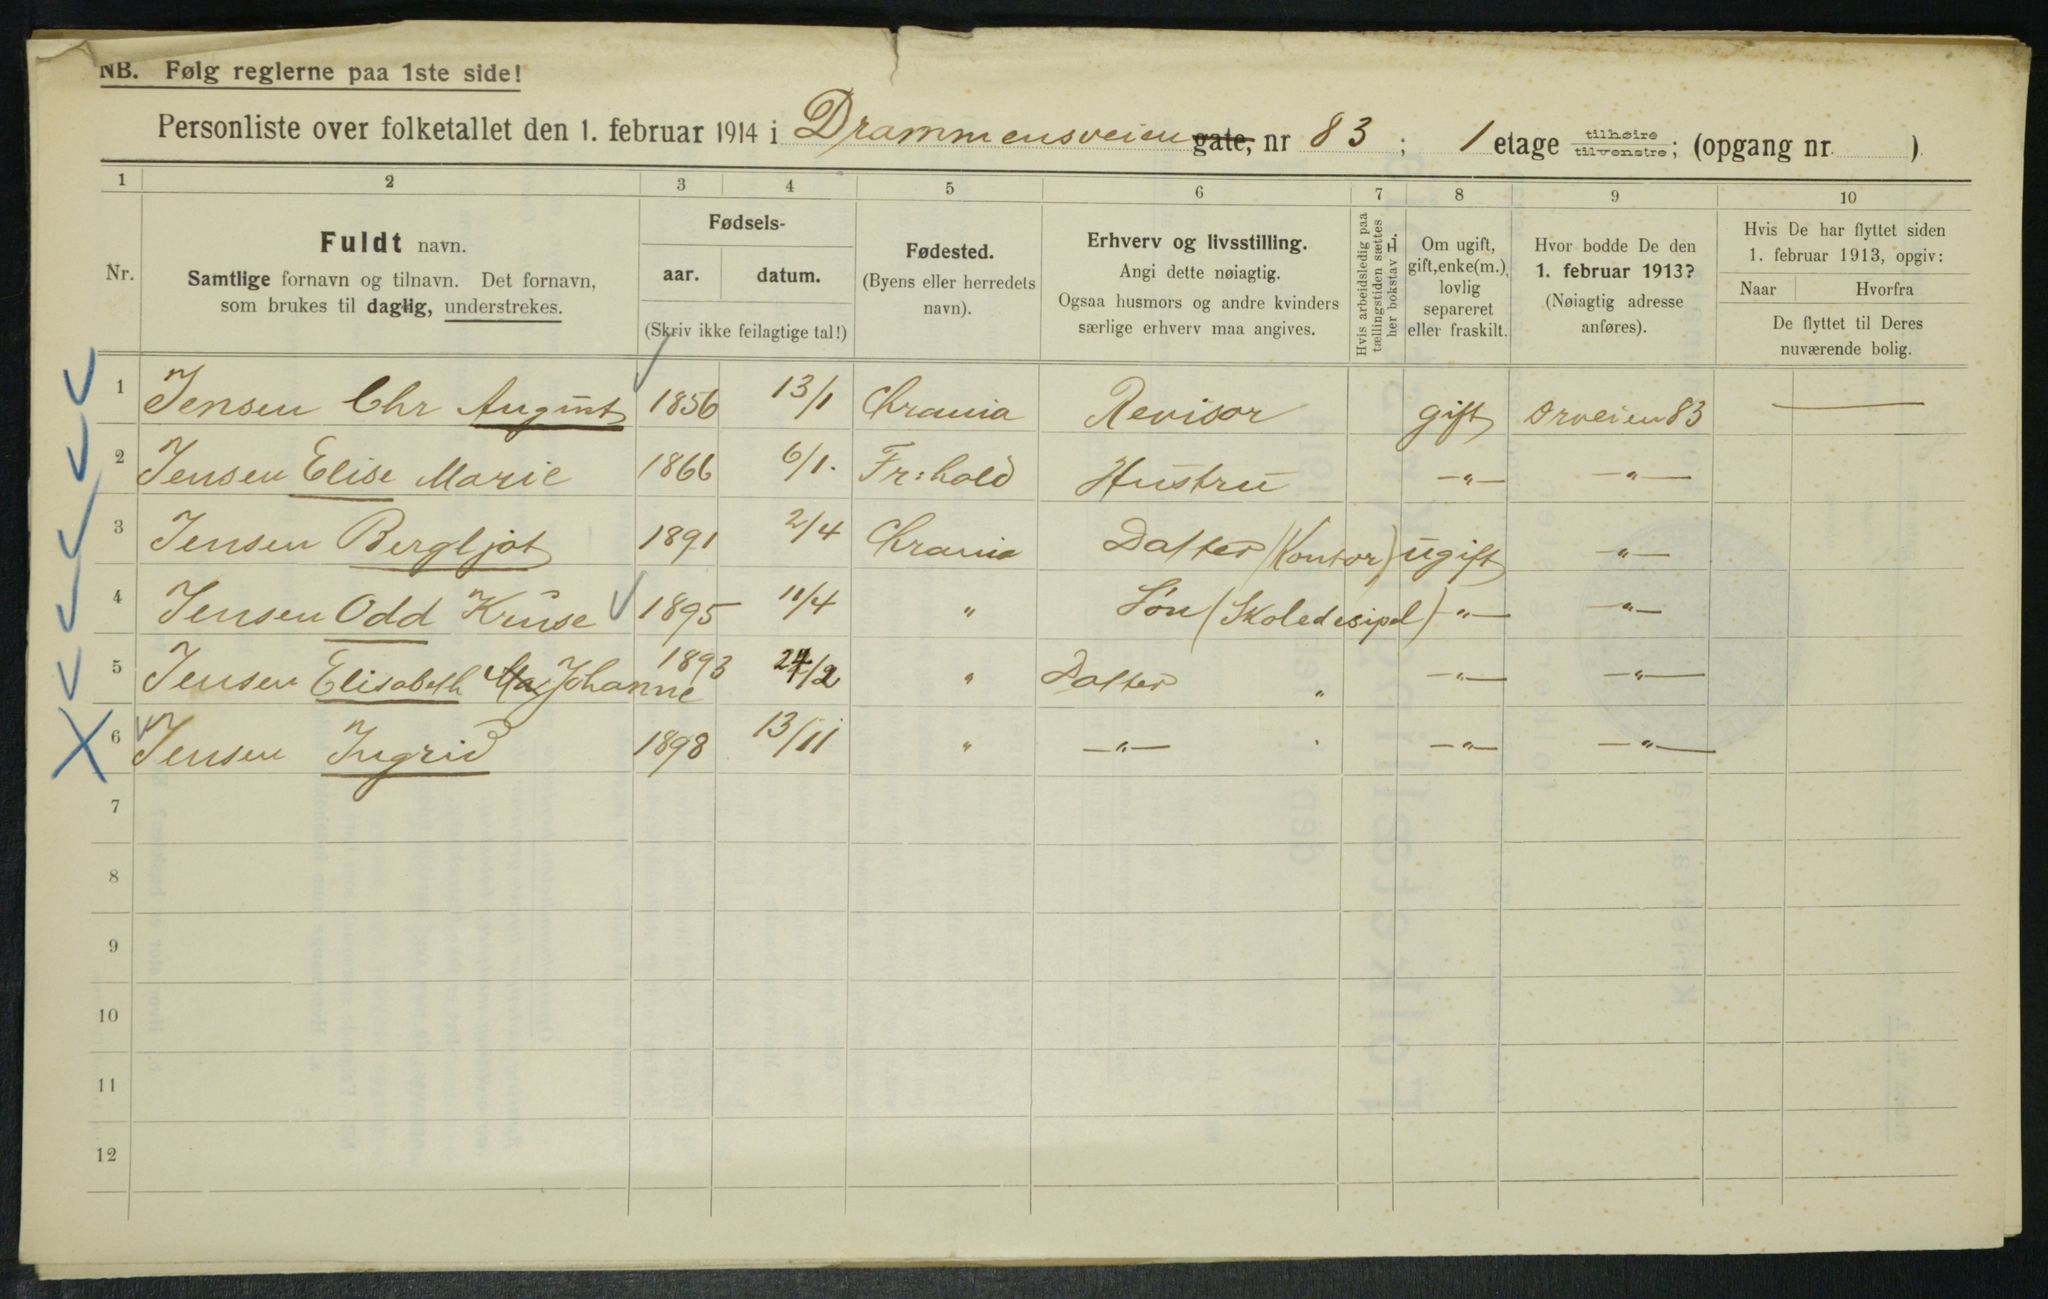 NB. Følg reglerne paa 1ste side!
Personliste over folketallet den 1. februar 1914 i Drammensveien gate, nr 83 ; 1 etage tilhøire / tilvenstre; (opgang nr. )
1 2 3 4 5 6 7 8 9 10
Nr.
Fuldt navn.
Samtlige fornavn og tilnavn. Det fornavn,
som brukes til daglig, understrekes.
Fødsels-
aar. datum.
(Skriv ikke feilagtige tal!)
Fødested.
(Byens eller herredets
navn).
Erhverv og livsstilling.
Angi dette nøiagtig.
Ogsaa husmors og andre kvinders
særlige erhverv maa angives.
Hvis arbeidsledig paa
tællingstiden sættes
her bokstav L.
Om ugift,
gift, enke(m.),
lovlig
separeret
eller fraskilt.
Hvor bodde De den
1. februar 1913?
(Nøiagtig adresse
anføres).
Hvis De har flyttet siden
1. februar 1913, opgiv:
Naar Hvorfra
De flyttet til Deres
nuværende bolig.
1 Jensen Chr August 1856 13/1 Chrania Revisor gift Drveien 83 —
2 Jensen Elise Marie 1866 6/1. Fr:hald Hustru —"— —"—
3 Jensen Bergljot 1891 2/4 Chrania Datter (Kontor) ugift —"—
4 Jensen Odd Kruse 1895 11/4 " Søn (Skoledisipel) —"— —"—
5 Jensen Elisabeth Johanne 1893 24/2 " Datter " —"— —"—
6 Jensen Ingrid 1898 13/11 " —"— " —"— —"—
7
8
9
10
11
12